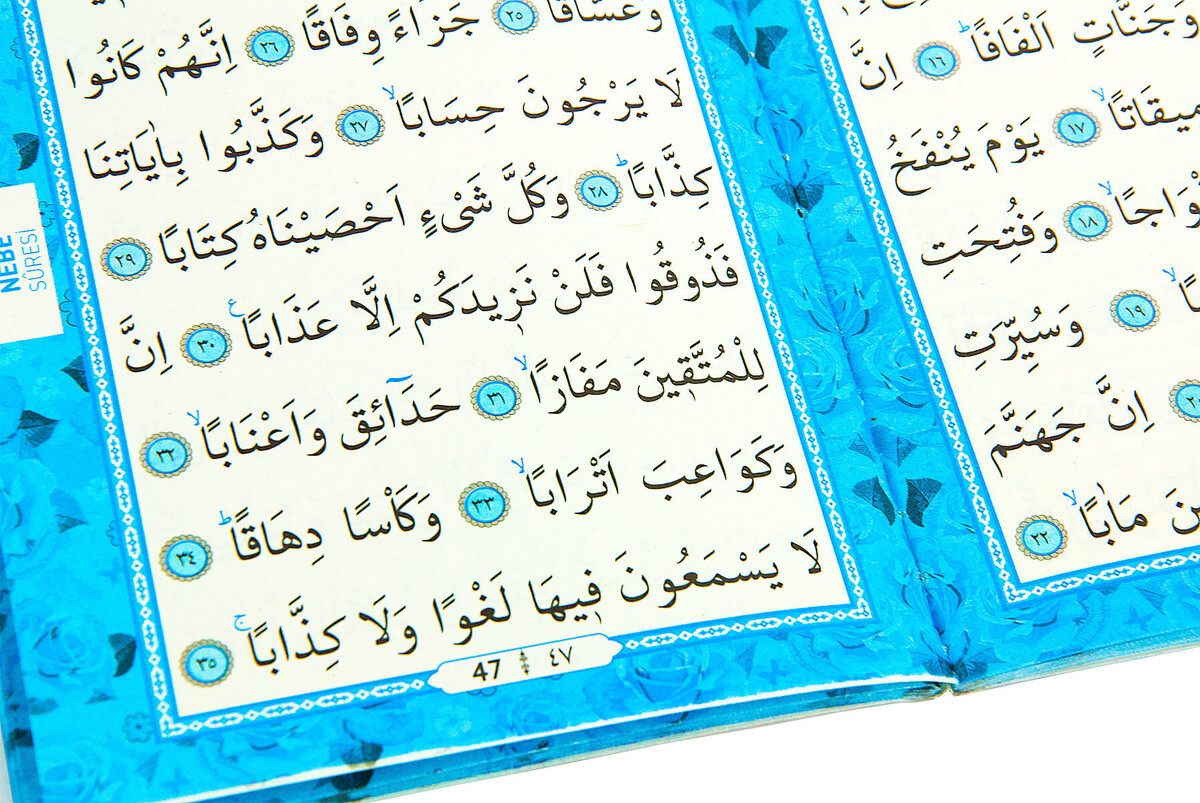 وَجَنَّاتٍ اَلْفَافًاۜ ١٦ اِنَّ
مٖيقَاتًاۙ ١٧ يَوْمَ يُنْفَخُ
١٨ وَفُتِحَتِ
١٩ وَسُيِّرَتِ
اِنَّ جَهَنَّمَ
مَاٰبًاۙ ٢٢
وَغَسَّاقًا ٢٥ جَزَاءً وِفَاقًا ٢٦ اِنَّهُمْ كَانُوا
لَا يَرْجُونَ حِسَابًاۙ ٢٧ وَكَذَّبُوا بِاٰيَاتِنَا
كِذَّابًاۜ ٢٨ وَكُلَّ شَیْءٍ اَحْصَيْنَاهُ كِتَابًا ٢٩
فَذُوقُوا فَلَنْ نَزٖيدَكُمْ اِلَّا عَذَابًا ع ٣٠ اِنَّ
لِلْمُتَّقٖينَ مَفَازًاۙ ٣١ حَدَٓائِقَ وَاَعْنَابًاۙ ٣٢
وَكَوَاعِبَ اَتْرَابًاۙ ٣٣ وَكَأْسًا دِهَاقًاۜ ٣٤
لَا يَسْمَعُونَ فٖيهَا لَغْوًا وَلَا كِذَّابًاۚ ٣٥
47 ٤٧
NEBE
SURESİ